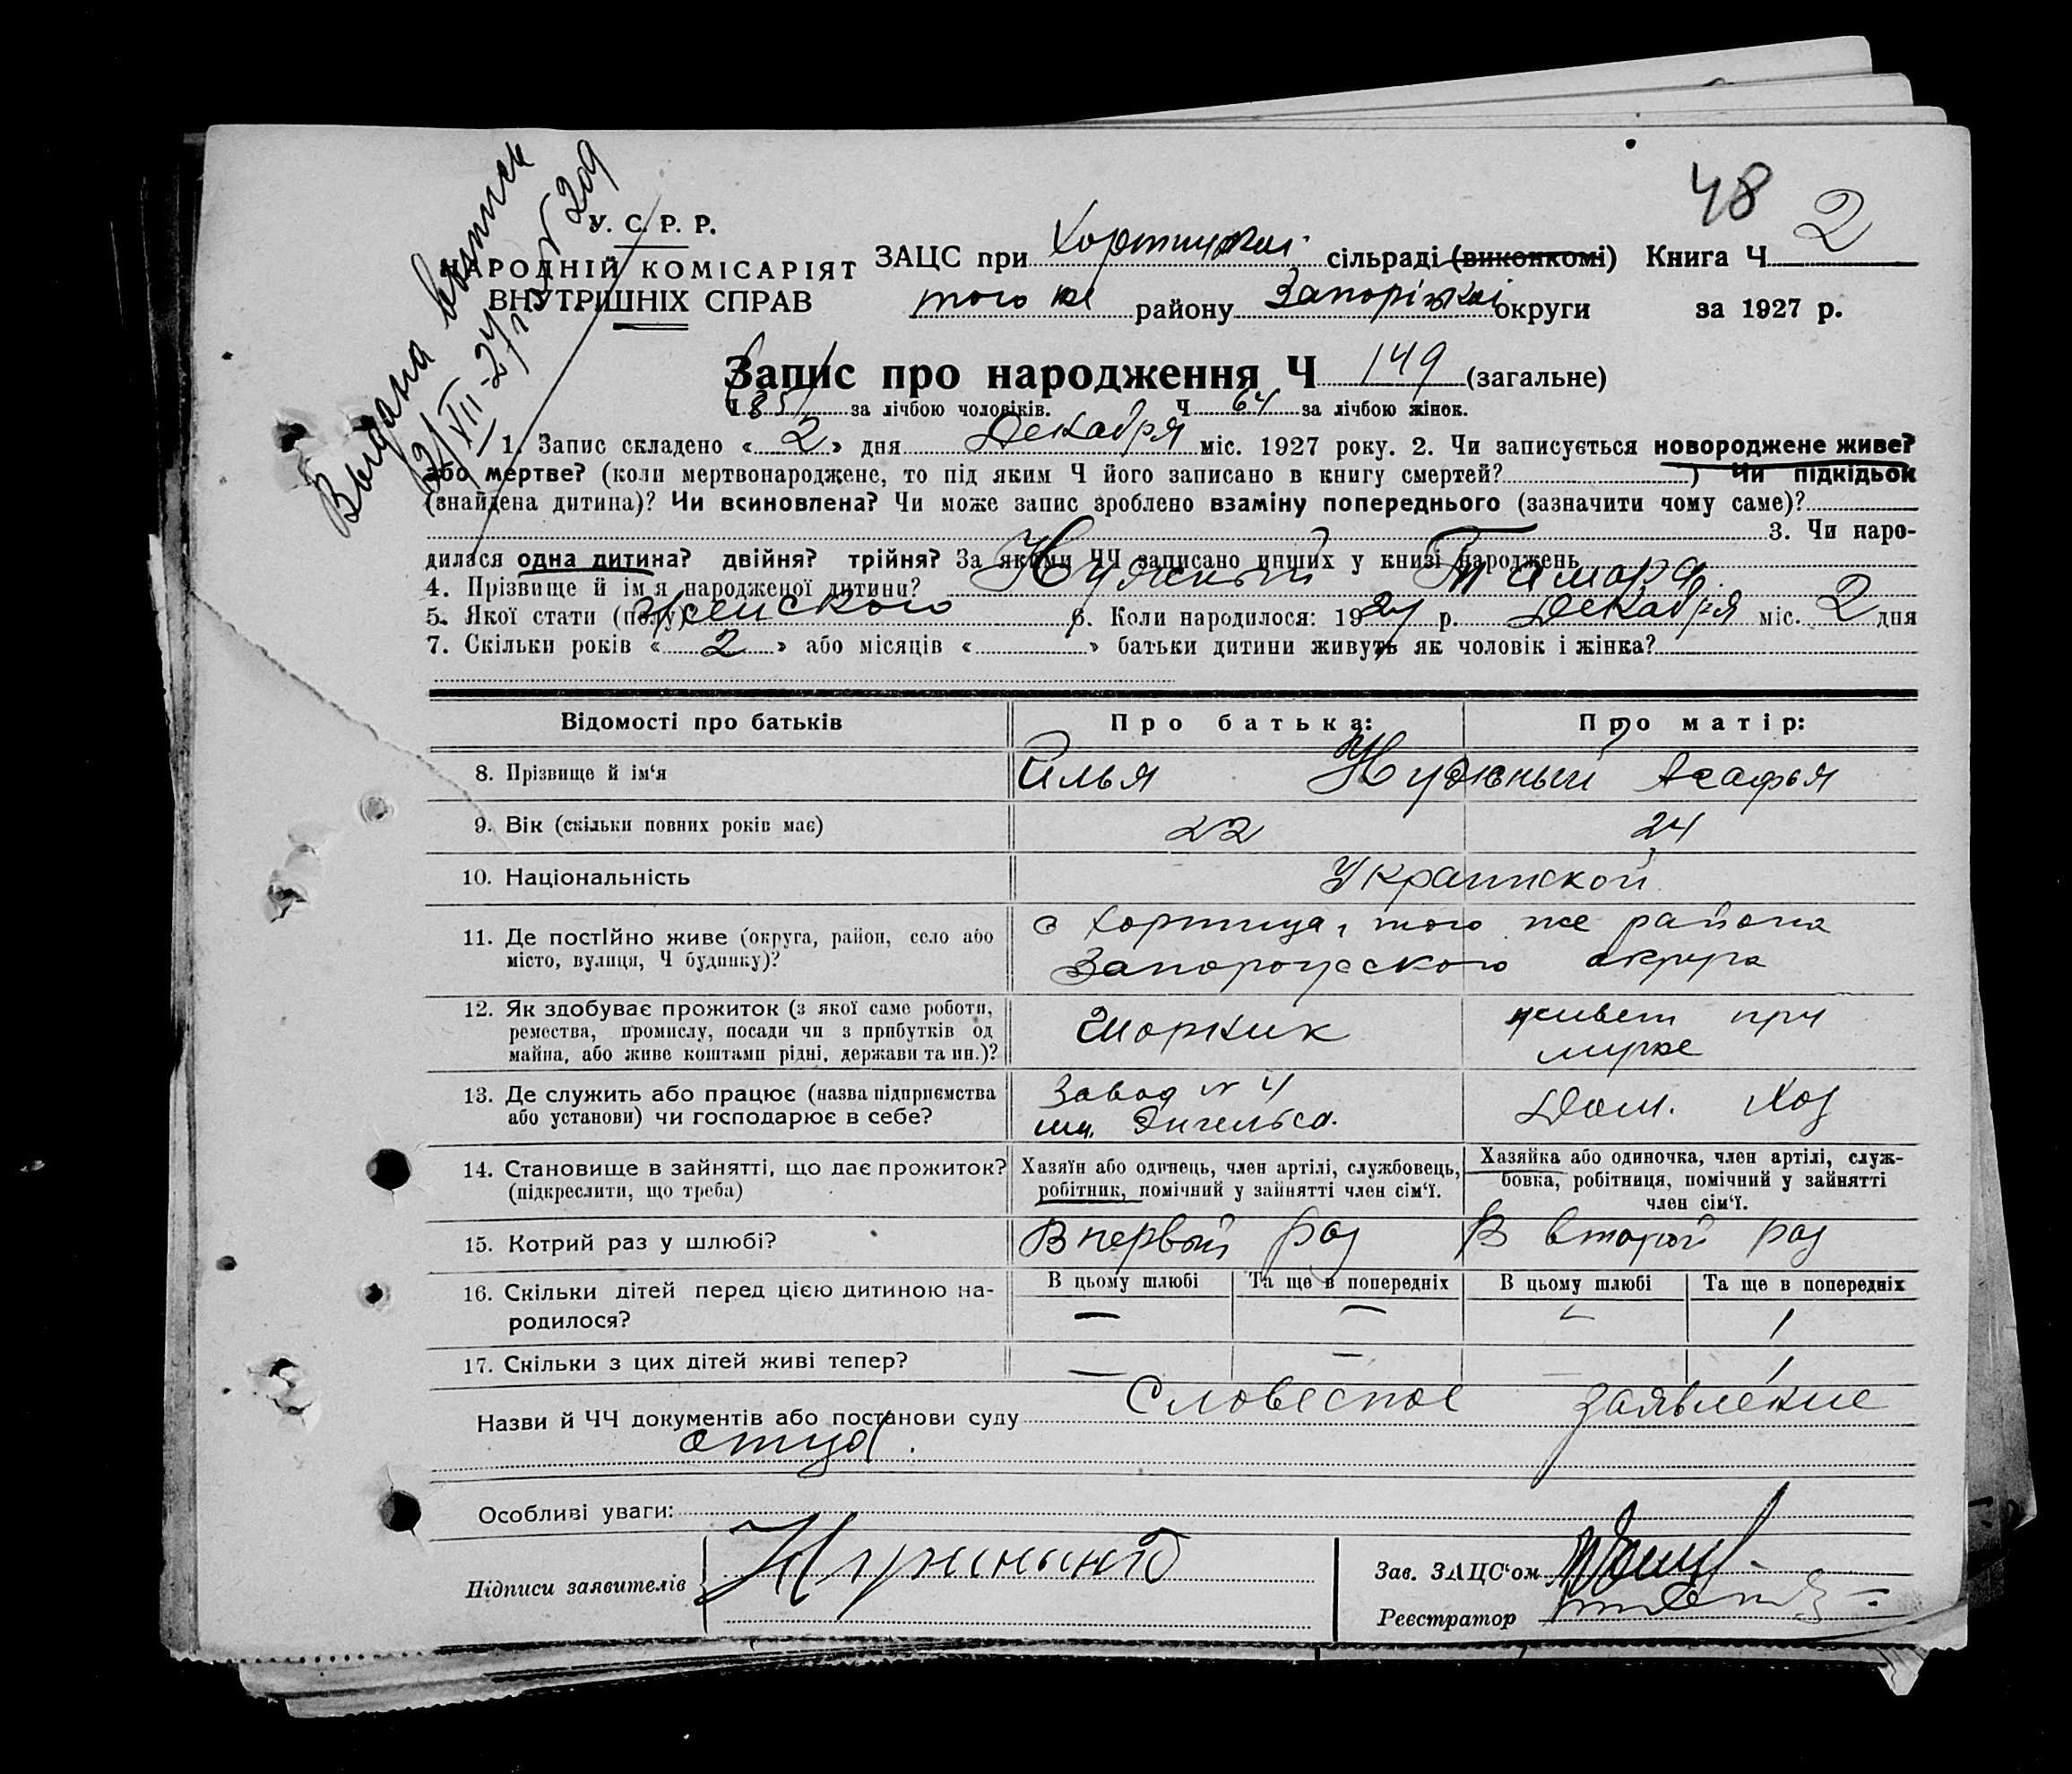 Выдана выпись
48
2
У. С. Р. Р.
НАРОДНІЙ КОМІСАРІЯТ
ВНУТРІШНІХ СПРАВ
ЗАЦС при Хортицкой сільраді (виконкомі) Книга Ч 2
того же району Запоріжкоі округи за 1927 р.
Запис про народження Ч 149 (загальне)
Ч 85 за лічбою чоловіків. Ч 64 за лічбою жінок.
1. Запис складено « 2 » дня Декабря міс. 1927 року. 2. Чи записується новороджене живе?
або мертве? (коли мертвонароджене, то під яким Ч його записано в книгу смертей? ) Чи підкідьок
(знайдена дитина)? Чи всиновлена? Чи може запис зроблено взаміну попереднього (зазначити чому саме)?
3. Чи наро-
дилася одна дитина? двійня? трійня? За якими ЧЧ записано инших у книзі народжень
4. Прізвище й ім'я народженої дитини? Нужный Тамара
5. Якої стати (полу) женского 6. Коли народилося: 1927 р. Декабря міс. 2 дня
7. Скільки років « 2 » або місяців « » батьки дитини живуть як чоловік і жінка?
Відомості про батьків Про батька: Про матір:
8. Прізвище й ім'я Илья Нужный Агафья
9. Вік (скільки повних років має) 22 24
10. Національність Украинской
11. Де постІйно живе (округа, район, село або
місто, вулиця, Ч будинку)?
с Хортица, того же района
Запорожского округа
12. Як здобуває прожиток (з якої саме роботи,
ремества, промислу, посади чи з прибутків од
майна, або живе коштами рідні, держави та ин.)?
Шорник
живет при
муже
13. Де служить або працює (назва підприємства
або установи) чи господарює в себе?
Завод № 4
им. Энгельса.
Дом. Хоз
14. Становище в зайнятті, що дає прожиток?
(підкреслити, що треба)
Хазяїн або одинець, член артілі, службовець,
робітник, помічний у зайнятті член сім'ї.
Хазяйка або одиночка, член артілі, служ-
бовка, робітниця, помічний у зайнятті
член сім'ї.
15. Котрий раз у шлюбі? В первый раз В второй раз
16. Скільки дітей перед цією дитиною на-
родилося?
В цьому шлюбі Та ще в попередніх В цьому шлюбі Та ще в попередніх
— — — 1
17. Скільки з цих дітей живі тепер? — — — 1
Назви й ЧЧ документів або постанови суду Словесное заявление
отца.
Особливі уваги:
Підписи заявителів Нужный
Зав. ЗАЦС'ом
Реєстратор